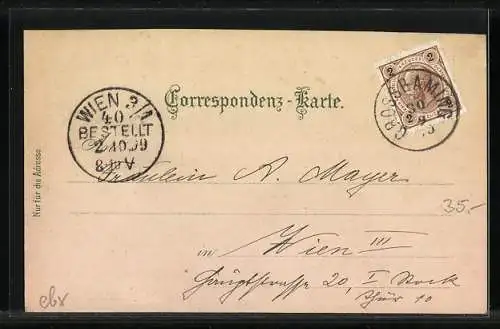 Correspondenz-Karte.
2
2
GROSSRAMING
WIEN 3/1
40
BESTELLT
2.10.99
8-10V
Nur für die Adresse
Fräulein A. Mayer
35.-
in Wien III
Hauptstrasse 20, I Stock
Thür 10